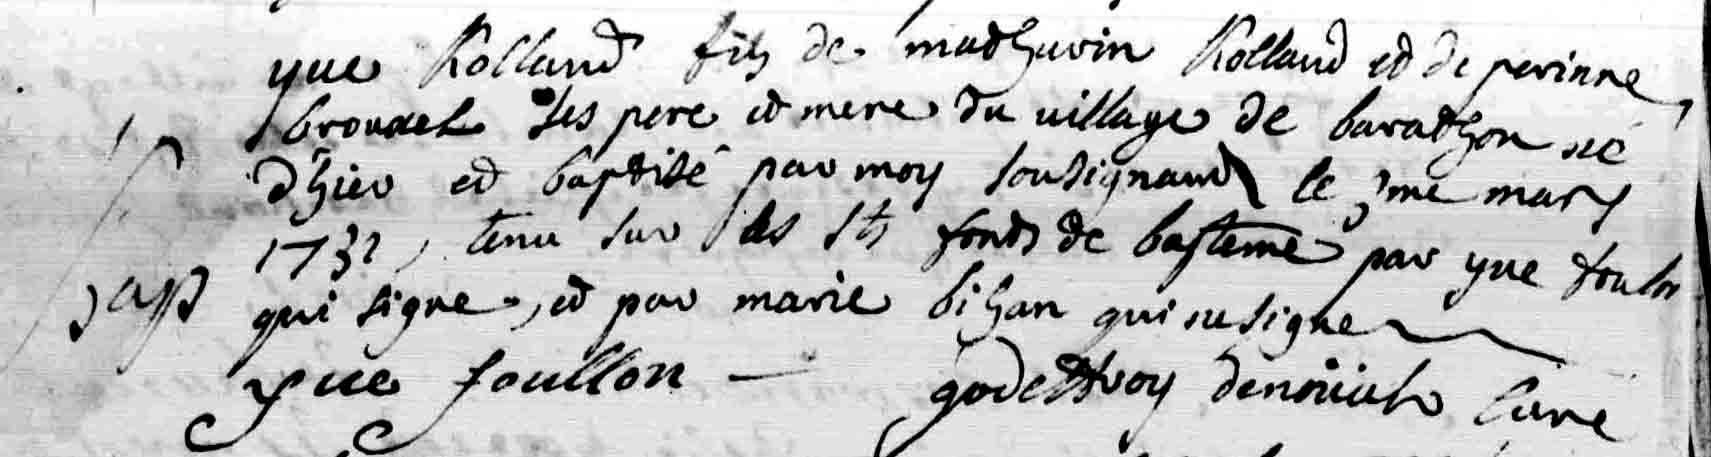 yue Rolland fils de mathurin Rolland et de perinne
brouxel ses pere et mere du village de barathon né
d'hier et baptisé par moy sousignant le 3me mars
1732, tenu sur les sts fonds de basteme par yue foulon
qui signe, et par marie bihan qui ne signe
bapt
yue foullon — godeffroy curé